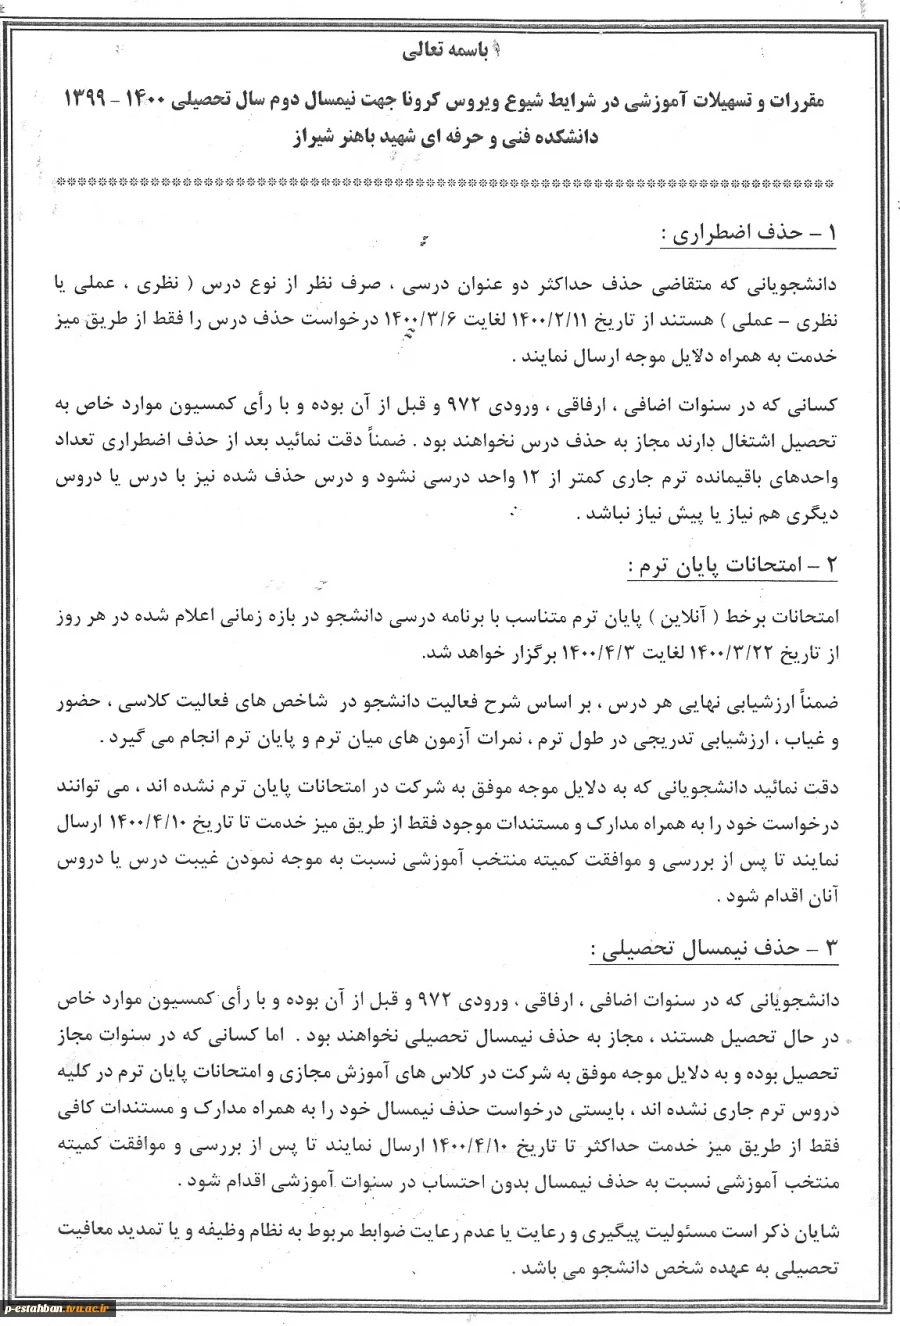 باسمه تعالی
مقررات و تسهیلات آموزشی در شرایط شیوع ویروس کرونا جهت نیمسال دوم سال تحصیلی ۱۴۰۰ - ۱۳۹۹
دانشکده فنی و حرفه ای شهید باهنر شیراز
۱ - حذف اضطراری :
دانشجویانی که متقاضی حذف حداکثر دو عنوان درسی ، صرف نظر از نوع درس ( نظری ، عملی یا
نظری - عملی ) هستند از تاریخ ۱۴۰۰/۲/۱۱ لغایت ۱۴۰۰/۳/۶ درخواست حذف درس را فقط از طریق میز
خدمت به همراه دلایل موجه ارسال نمایند .
کسانی که در سنوات اضافی ، ارفاقی ، ورودی ۹۷۲ و قبل از آن بوده و با رأی کمسیون موارد خاص به
تحصیل اشتغال دارند مجاز به حذف درس نخواهند بود . ضمناً دقت نمائید بعد از حذف اضطراری تعداد
واحدهای باقیمانده ترم جاری کمتر از ۱۲ واحد درسی نشود و درس حذف شده نیز با درس یا دروس
دیگری هم نیاز یا پیش نیاز نباشد .
۲ - امتحانات پایان ترم :
امتحانات برخط ( آنلاین ) پایان ترم متناسب با برنامه درسی دانشجو در بازه زمانی اعلام شده در هر روز
از تاریخ ۱۴۰۰/۳/۲۲ لغایت ۱۴۰۰/۴/۳ برگزار خواهد شد.
ضمناً ارزشیابی نهایی هر درس ، بر اساس شرح فعالیت دانشجو در شاخص های فعالیت کلاسی ، حضور
و غیاب ، ارزشیابی تدریجی در طول ترم ، نمرات آزمون های میان ترم و پایان ترم انجام می گیرد .
دقت نمائید دانشجویانی که به دلایل موجه موفق به شرکت در امتحانات پایان ترم نشده اند ، می توانند
درخواست خود را به همراه مدارک و مستندات موجود فقط از طریق میز خدمت تا تاریخ ۱۴۰۰/۴/۱۰ ارسال
نمایند تا پس از بررسی و موافقت کمیته منتخب آموزشی نسبت به موجه نمودن غیبت درس یا دروس
آنان اقدام شود .
۳ - حذف نیمسال تحصیلی :
دانشجویانی که در سنوات اضافی ، ارفاقی ، ورودی ۹۷۲ و قبل از آن بوده و با رأی کمسیون موارد خاص
در حال تحصیل هستند ، مجاز به حذف نیمسال تحصیلی نخواهند بود . اما کسانی که در سنوات مجاز
تحصیل بوده و به دلایل موجه موفق به شرکت در کلاس های آموزش مجازی و امتحانات پایان ترم در کلیه
دروس ترم جاری نشده اند ، بایستی درخواست حذف نیمسال خود را به همراه مدارک و مستندات کافی
فقط از طریق میز خدمت حداکثر تا تاریخ ۱۴۰۰/۴/۱۰ ارسال نمایند تا پس از بررسی و موافقت کمیته
منتخب آموزشی نسبت به حذف نیمسال بدون احتساب در سنوات آموزشی اقدام شود .
شایان ذکر است مسئولیت پیگیری و رعایت یا عدم رعایت ضوابط مربوط به نظام وظیفه و یا تمدید معافیت
تحصیلی به عهده شخص دانشجو می باشد .
p-estahban.tvu.ac.ir